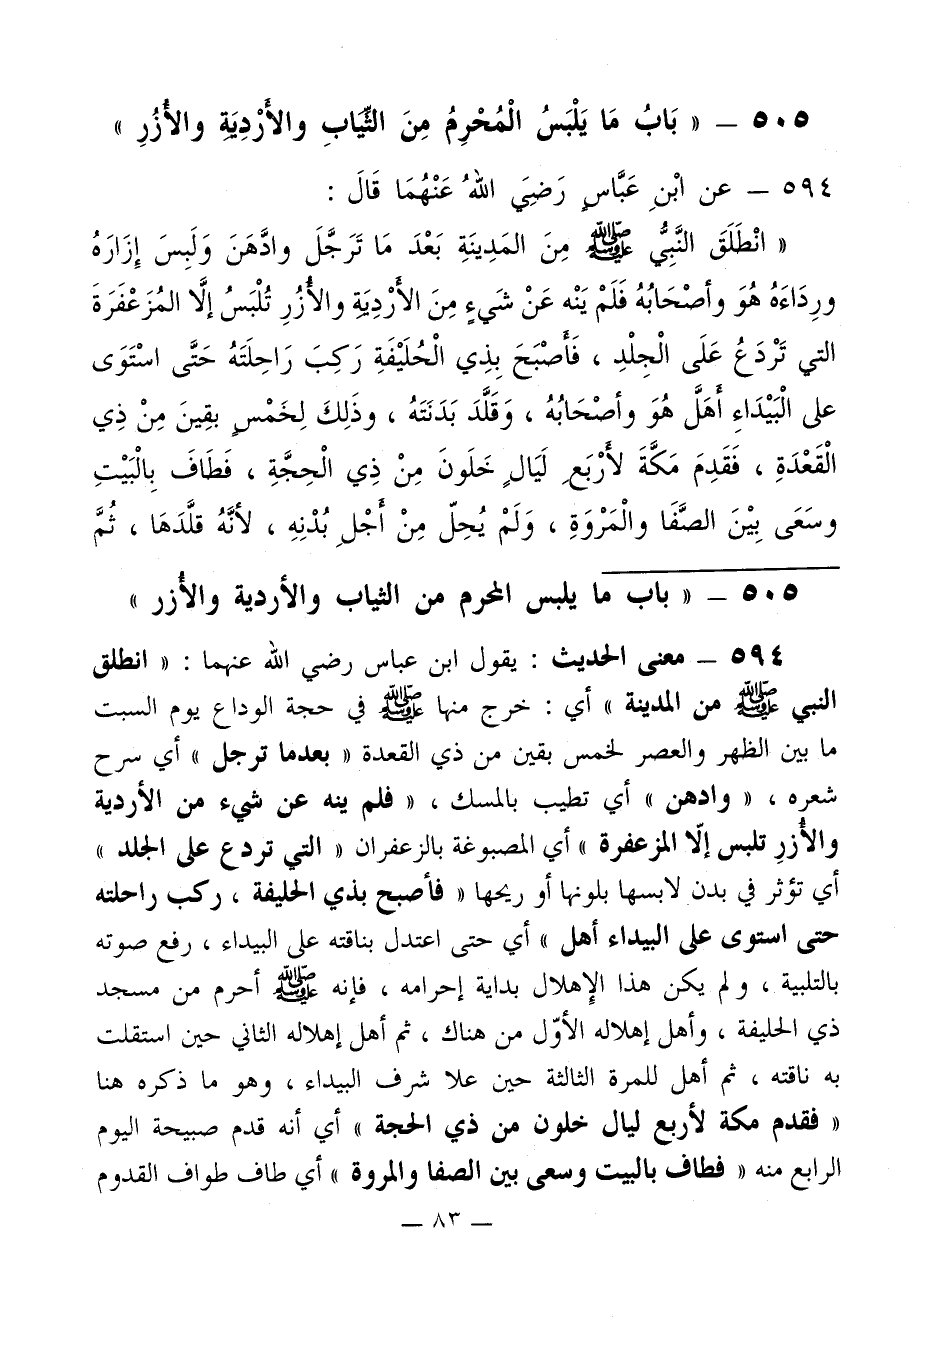 ٥٠٥ ــ « بَابُ مَا يَلْبَسُ الْمُحْرِمُ مِنَ الثِّيَابِ والأَرْدِيَةِ والأُزُرِ »
٥٩٤ ــ عن ابْنِ عَبَّاسٍ رَضِيَ اللهُ عَنْهُمَا قَالَ :
« انْطَلَقَ النَّبِيُّ ﷺ مِنَ المَدِينَةِ بَعْدَ مَا تَرَجَّلَ وادَّهَنَ وَلَبِسَ إِزَارَهُ
ورِدَاءَهُ هُوَ وأَصْحَابُهُ فَلَمْ يَنْه عَنْ شَيءٍ مِنَ الأَرْدِيَةِ والأُزُرِ تُلْبَسُ إلَّا المُزَعْفَرَةَ
التي تَرْدَعُ عَلَى الْجِلْدِ ، فَأَصْبَحَ بِذِي الْحُلَيْفَةِ رَكِبَ رَاحِلَتَهُ حَتَّى اسْتَوَى
على الْبَيْدَاءِ أَهَلَّ هُوَ وأَصْحَابُهُ ، وَقَلَّدَ بَدَنَتَهُ ، وذَلِكَ لِخَمْسٍ بقِينَ مِنْ ذِي
الْقَعْدَةِ ، فَقَدِمَ مَكَّةَ لأَرْبَعِ لَيَالٍ خَلَونَ مِنْ ذِي الْحِجَّةِ ، فَطَافَ بِالْبَيْتِ
وسَعَى بِيْنَ الصَّفَا والْمَرْوَةِ ، وَلَمْ يُحِلّ مِنْ أَجْلِ بُدْنِهِ ، لأنَّهُ قلَّدَهَا ، ثُمَّ
٥٠٥ ــ « باب ما يلبس المحرم من الثياب والأردية والأُزر »
٥٩٤ ــ معنى الحديث : يقول ابن عباس رضي الله عنهما : « انطلق
النبي ﷺ من المدينة » أي : خرج منها ﷺ في حجة الوداع يوم السبت
ما بين الظهر والعصر لخمس بقين من ذي القعدة « بعدما ترجل » أي سرح
شعره ، « وادهن » أي تطيب بالمسك ، « فلم ينه عن شيء من الأردية
والأُزرِ تلبس إلّا المزعفرة » أي المصبوغة بالزعفران « التي تردع على الجلد »
أي تؤثر في بدن لابسها بلونها أو ريحها « فأصبح بذي الحليفة ، ركب راحلته
حتى استوى على البيداء أهل » أي حتى اعتدل بناقته على البيداء ، رفع صوته
بالتلبية ، ولم يكن هذا الإهلال بداية إحرامه ، فإنه ﷺ أحرم من مسجد
ذي الحليفة ، وأهل إهلاله الأوّل من هناك ، ثم أهل إهلاله الثاني حين استقلت
به ناقته ، ثم أهل للمرة الثالثة حين علا شرف البيداء ، وهو ما ذكره هنا
« فقدم مكة لأربع ليال خلون من ذي الحجة » أي أنه قدم صبيحة اليوم
الرابع منه « فطاف بالبيت وسعى بين الصفا والمروة » أي طاف طواف القدوم
ــ ٨٣ ــ